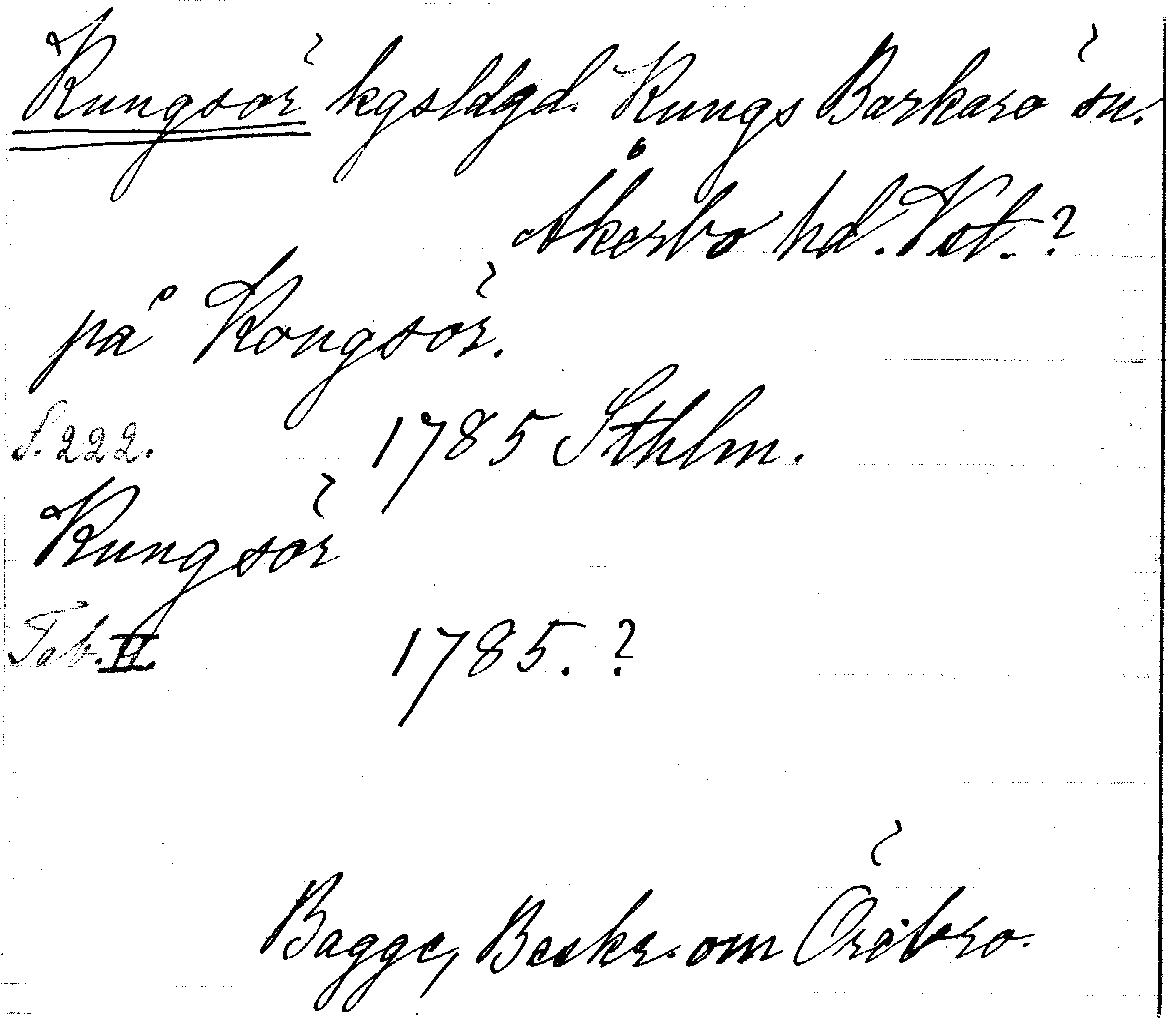 Kungsör kgsldgd. Kungs Barkarö sn.
Åkerbo hd. Vst. ?
på Kongsör.
S. 222. 1785 Sthlm.
Kungsör
Tab. II. 1785. ?
Bagge, Beskr. om Örebro.